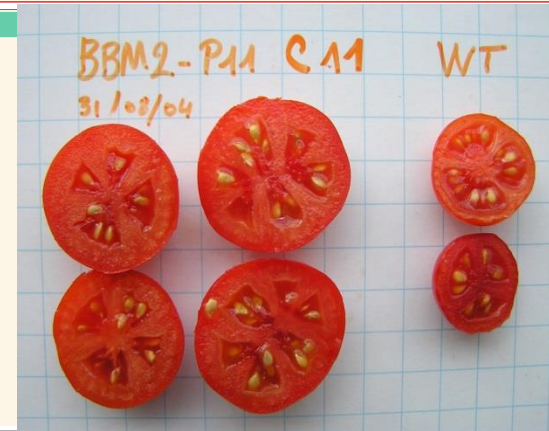 BBM2-P11 C11 WT
31/08/04